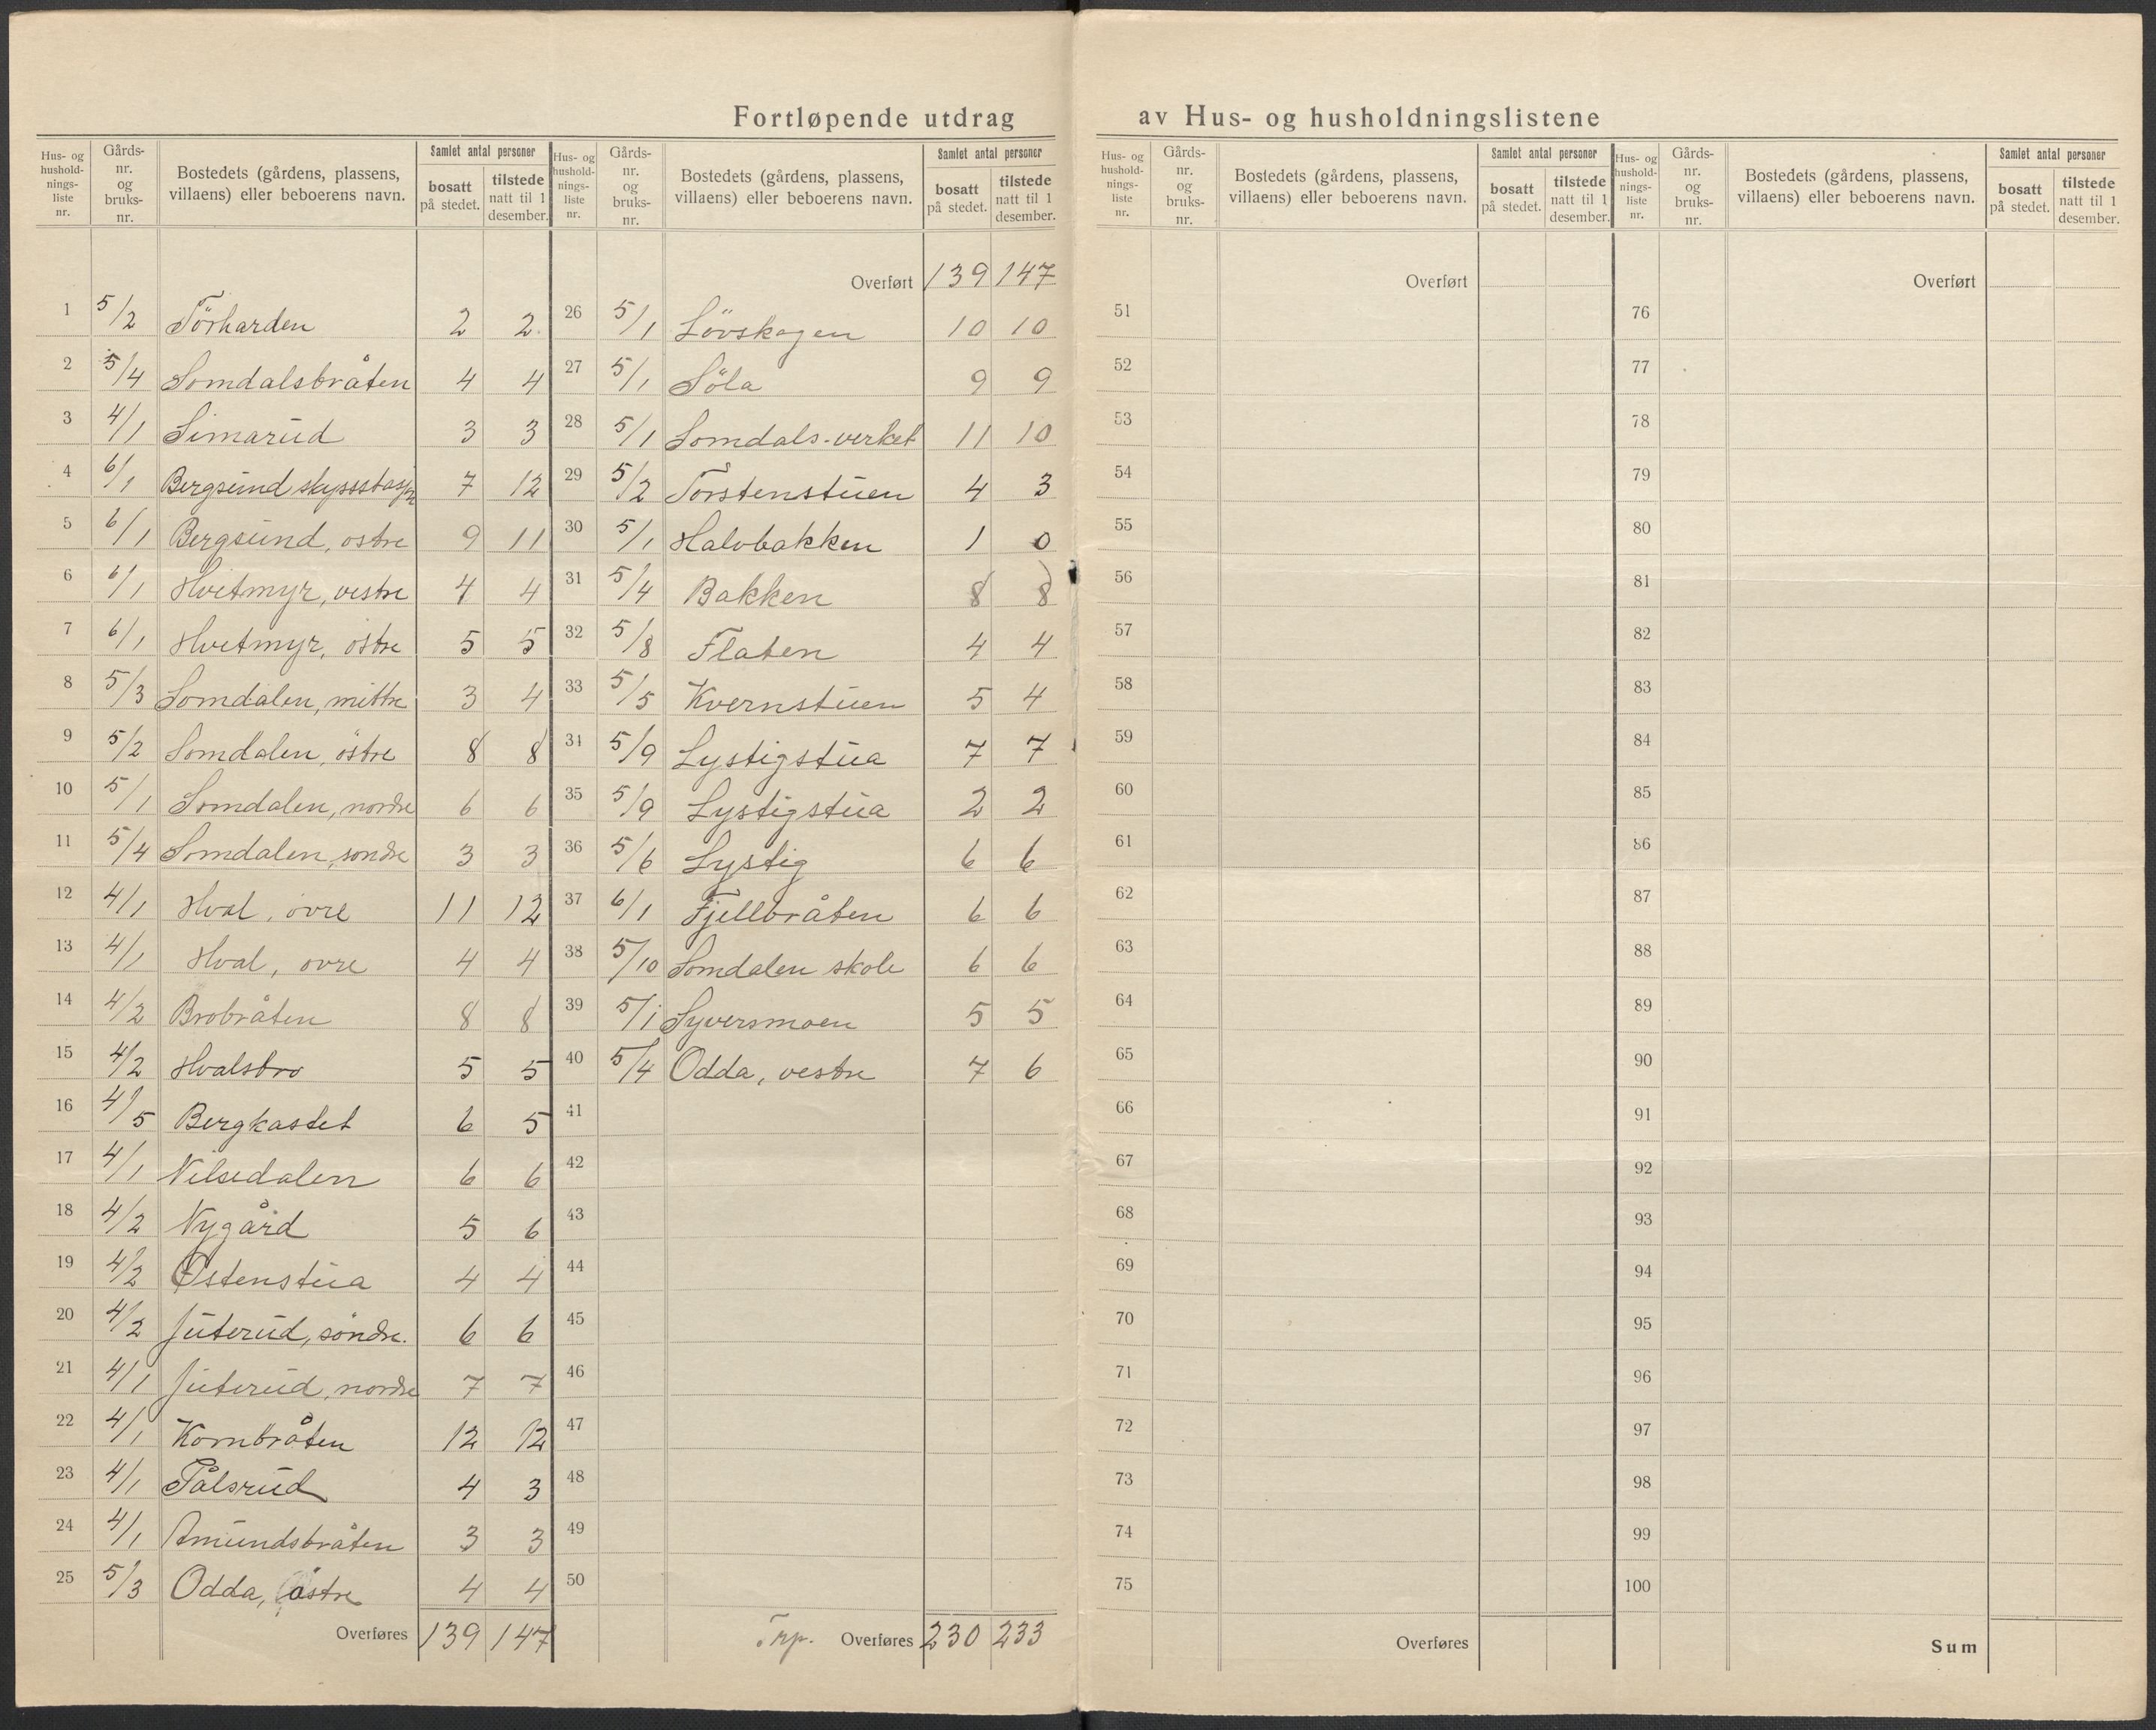 Fortløpende utdrag av Hus- og husholdningslistene
Hus- og husholdningsliste nr. Gårds- nr. og bruks- nr. Bostedets (gårdens, plassens, villaens) eller beboerens navn. Samlet antal personer bosatt på stedet. tilstede natt til 1 desember.
1 5/2 Törharden 2 2
2 5/4 Somdalsbråten 4 4
3 4/1 Simarud 3 3
4 6/1 Bergsund skyssstasjon 7 12
5 6/1 Bergsund, ostre 9 11
6 6/1 Hvitmyr, vestre 4 4
7 6/1 Hvitmyr, östre 5 5
8 5/3 Somdalen, mittre 3 4
9 5/2 Somdalen, östre 8 8
10 5/1 Somdalen, nordre 6 6
11 5/4 Somdalen, sondre 3 3
12 4/1 Hval, ovre 11 12
13 4/1 Hval, ovre 4 4
14 4/2 Brobråten 8 8
15 4/2 Hvalsbro 5 5
16 4/5 Bergkastet 6 5
17 4/1 Nilsedalen 6 6
18 4/2 Nygård 5 6
19 4/2 Ostenstua 4 4
20 4/2 Juterud, söndre. 6 6
21 4/1 Juterud, nordre 7 7
22 4/1 Kornbråten 12 12
23 4/1 Pålsrud 4 3
24 4/1 Amundsbråten 3 3
25 5/3 Odda, östre 4 4
Overføres 139 147
Hus- og husholdningsliste nr. Gårds- nr. og bruks- nr. Bostedets (gårdens, plassens, villaens) eller beboerens navn. Samlet antal personer bosatt på stedet. tilstede natt til 1 desember.
Overført 139 147
26 5/1 Lövskogen 10 10
27 5/1 Söla 9 9
28 5/1 Somdals-verket 11 10
29 5/2 Torstenstuen 4 3
30 5/1 Halvbakken 1 0
31 5/4 Bakken 8 8
32 5/8 Flaten 4 4
33 5/5 Kvernstuen 5 4
34 5/9 Lystigstua 7 7
35 5/9 Lystigstua 2 2
36 5/6 Lystig 6 6
37 6/1 Fjellbråten 6 6
38 5/10 Somdalen skole 6 6
39 5/1 Syversmoen 5 5
40 5/4 Odda, vestre 7 6
41
42
43
44
45
46
47
48
49
50
Trp. Overføres 230 233
Hus- og husholdningsliste nr. Gårds- nr. og bruks- nr. Bostedets (gårdens, plassens, villaens) eller beboerens navn. Samlet antal personer bosatt på stedet. tilstede natt til 1 desember.
Overført
51
52
53
54
55
56
57
58
59
60
61
62
63
64
65
66
67
68
69
70
71
72
73
74
75
Overføres
Hus- og husholdningsliste nr. Gårds- nr. og bruks- nr. Bostedets (gårdens, plassens, villaens) eller beboerens navn. Samlet antal personer bosatt på stedet. tilstede natt til 1 desember.
Overført
76
77
78
79
80
81
82
83
84
85
86
87
88
89
90
91
92
93
94
95
96
97
98
99
100
Sum